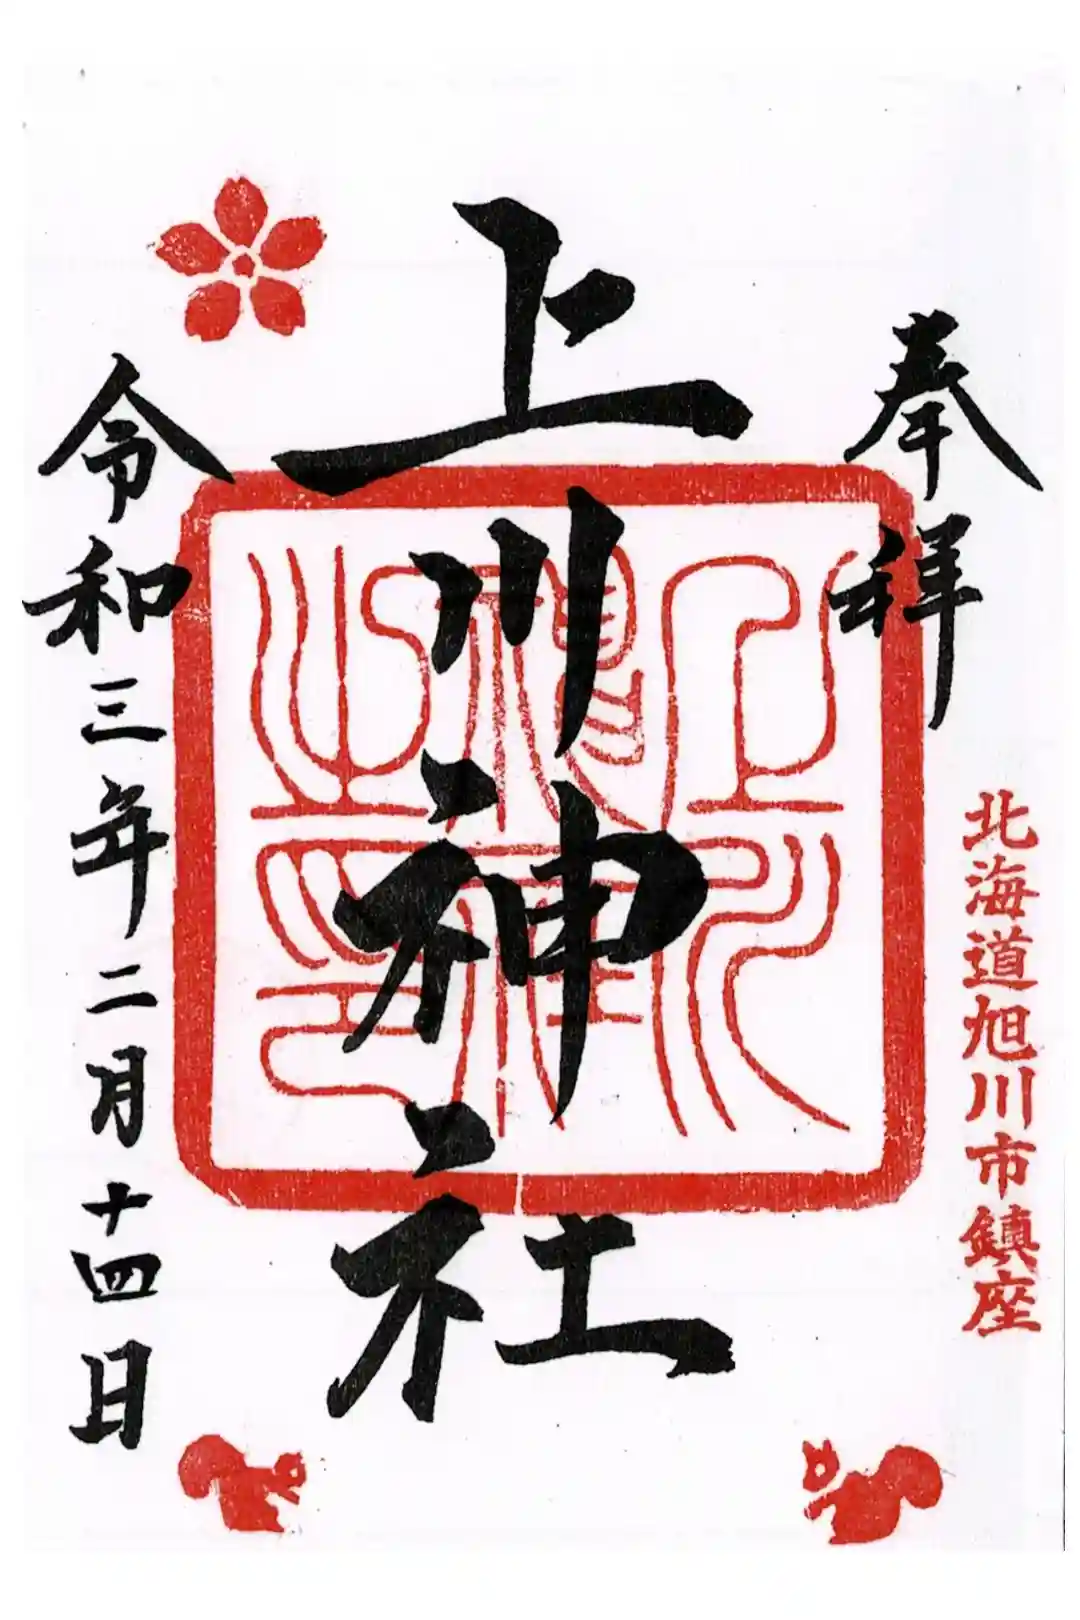 奉拝
北海道旭川市鎮座
上川神社
上川神社之印
令和三年二月十四日